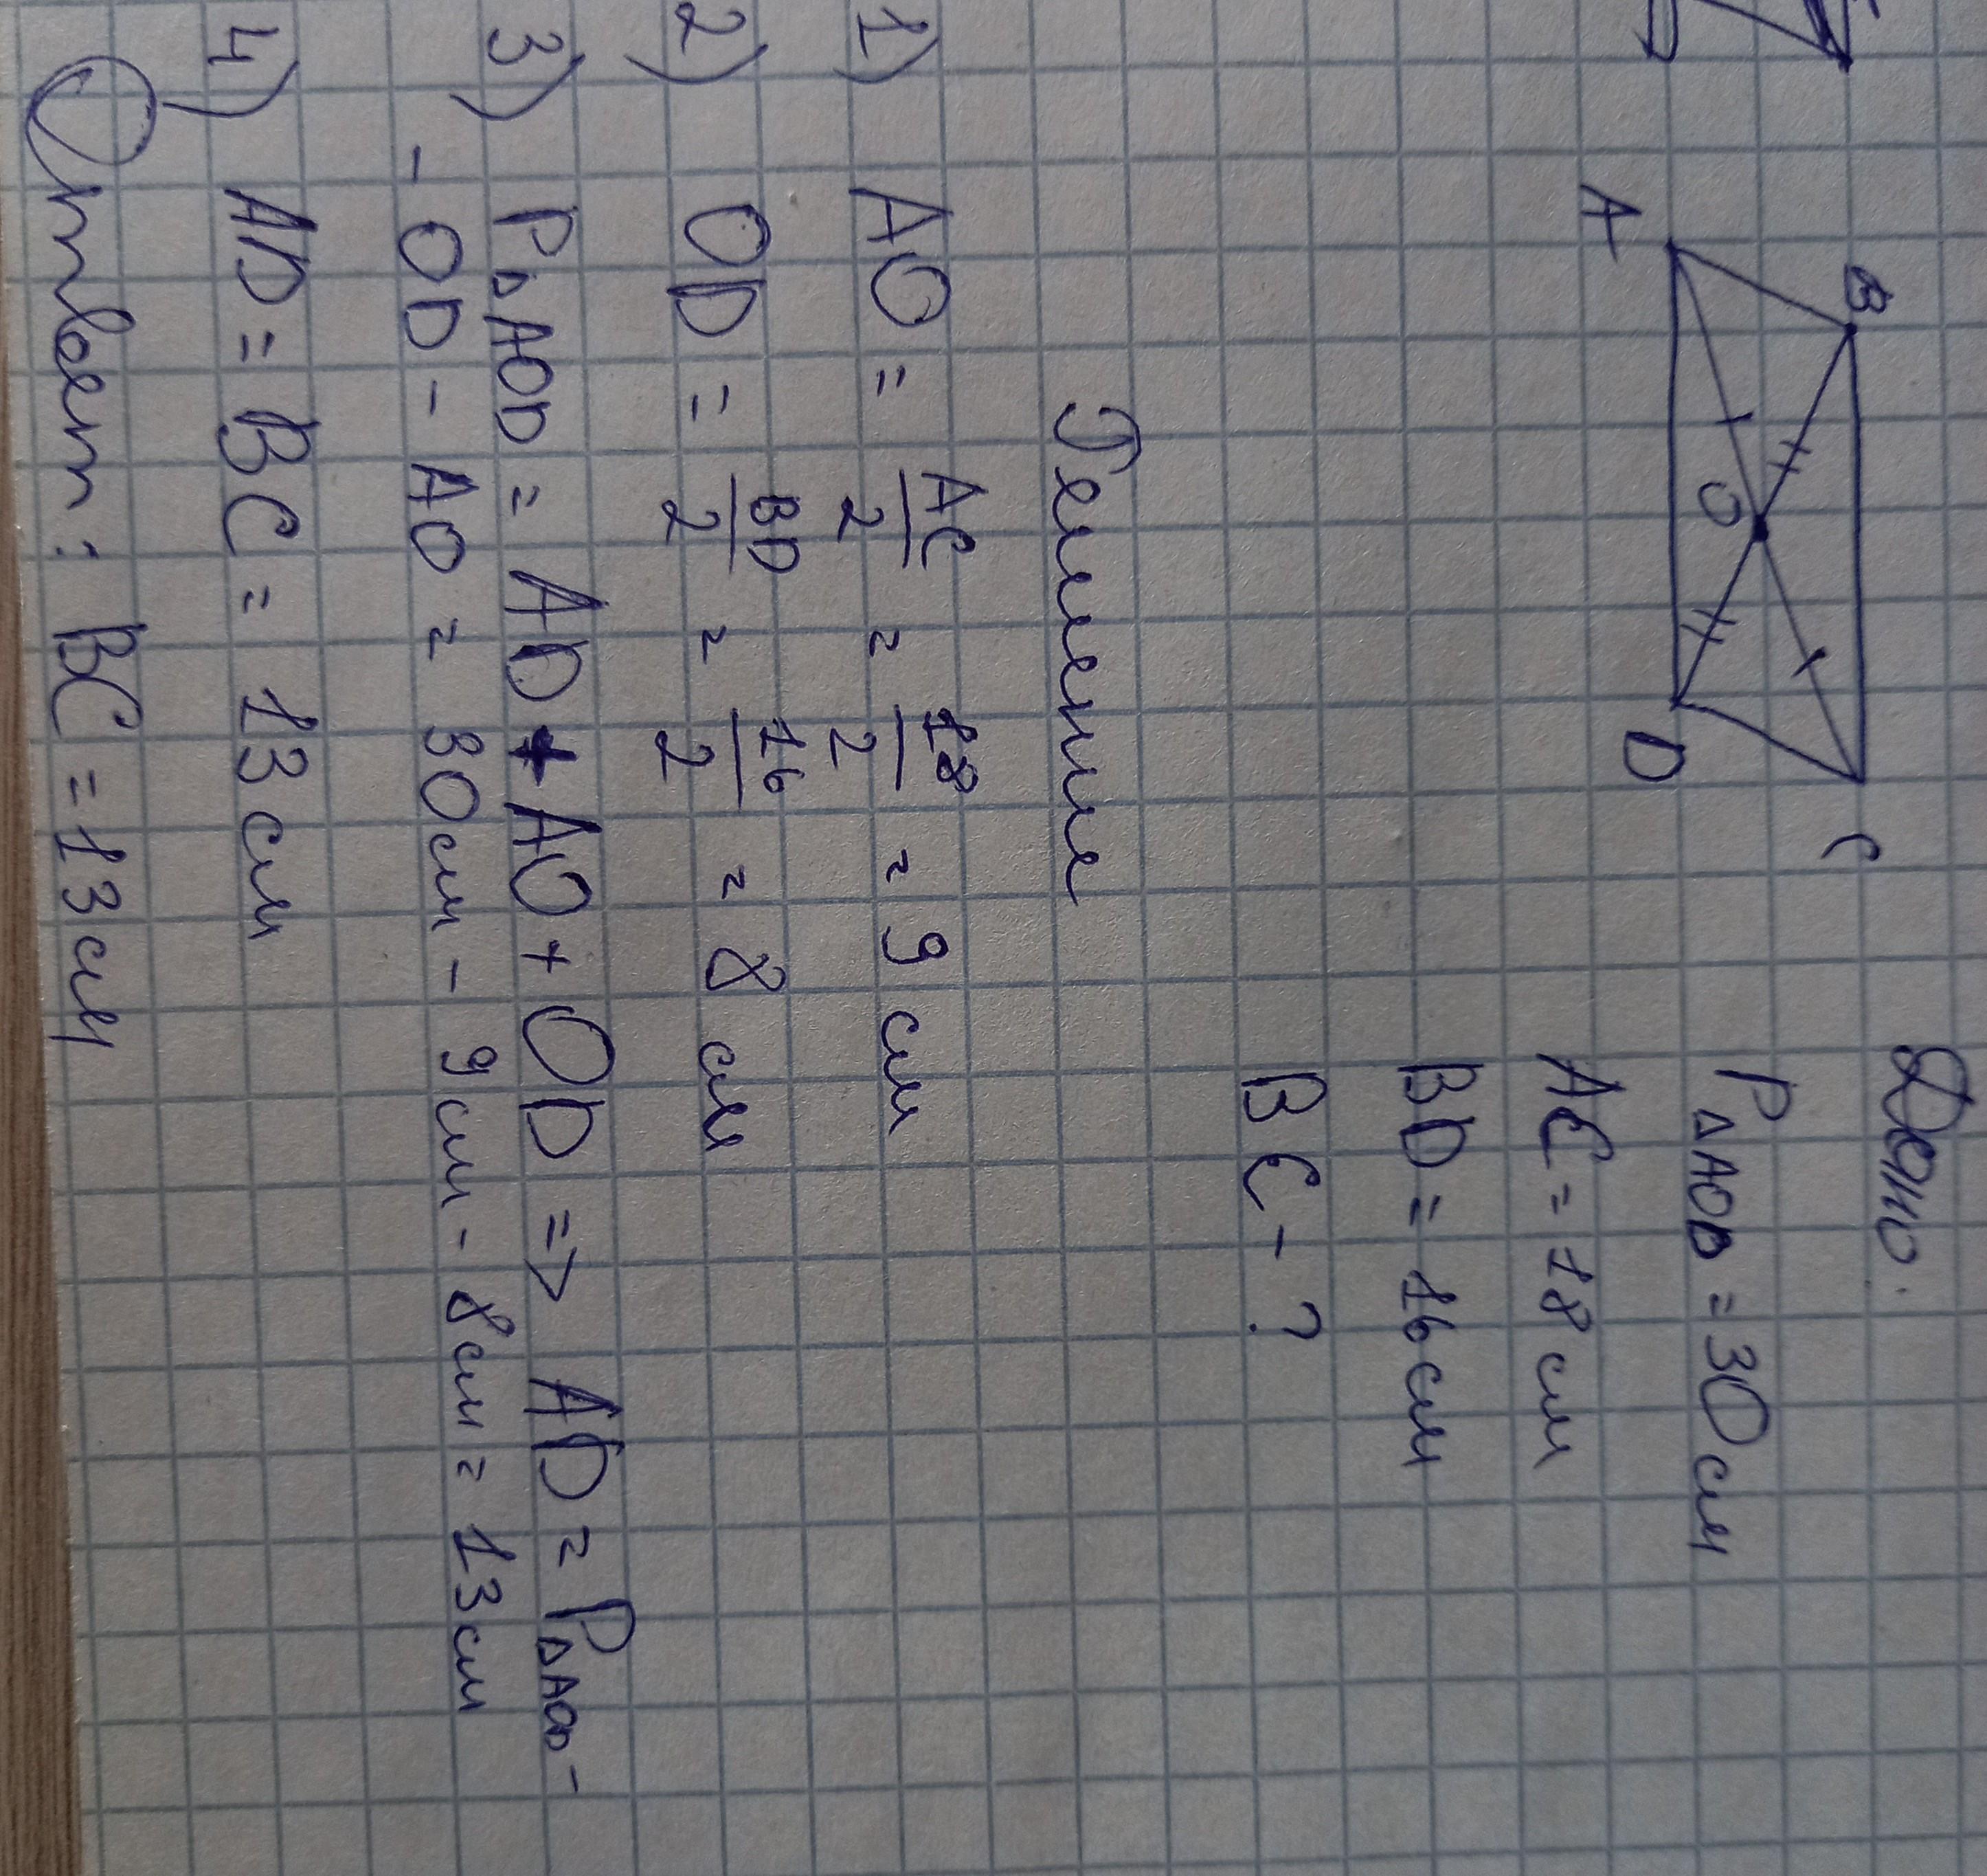 B
C
A
O
D
Дано.
P△AOD = 30 см
AC = 18 см
BD = 16 см
BC - ?
Решение
1) AO = AC/2 = 18/2 = 9 см
2) OD = BD/2 = 16/2 = 8 см
3) P△AOD = AD + AO + OD => AD = P△AOD -
- OD - AO = 30см - 9см - 8см = 13см
4) AD = BC = 13 см
Ответ: BC = 13 см